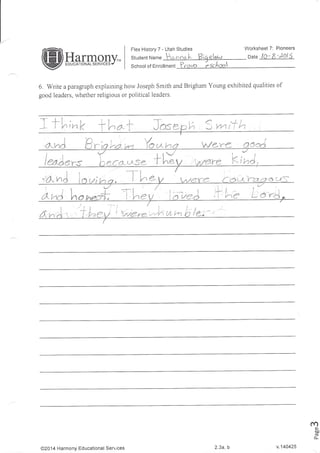 Harmony™
EDUCATIONAL SERVICES
Flex History 7 - Utah Studies
Worksheet 7: Pioneers
Student Name Hannah Bigelow
Date 10-8-2015
School of Enrollment Provo eschool
6. Write a paragraph explaining how Joseph Smith and Brigham Young exhibited qualities of
good leaders, whether religious or political leaders.
I think that Joseph Smith
and Brigham Young were good
leaders because they were kind,
and loving. They were couragous
and honest. They loved the Lord,
and they were humble.
Page 3
©2014 Harmony Educational Services
2.3a, b
v.140425